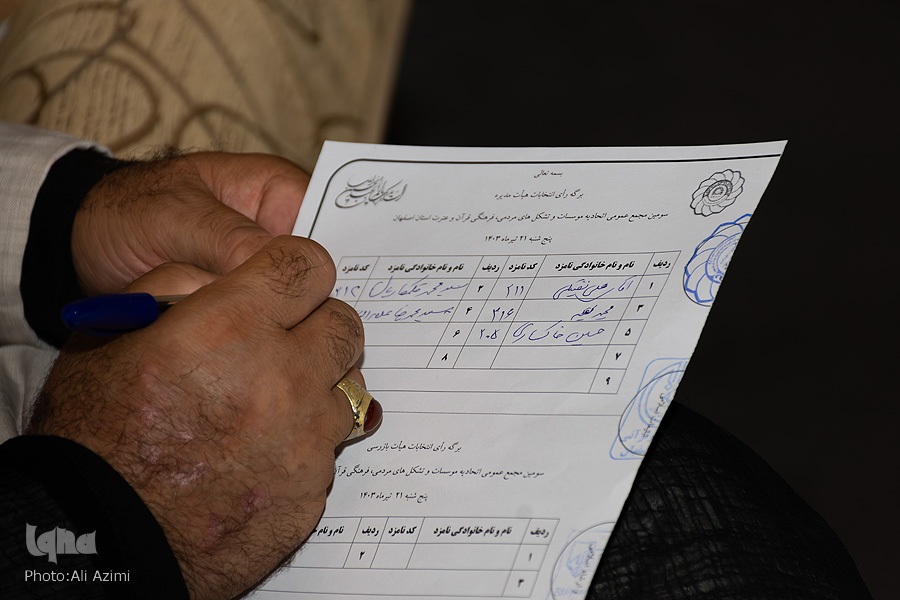 بسمه تعالی
برگه رأی انتخابات هیأت مدیره
سومین مجمع عمومی اتحادیه موسسات و تشکل های مردمی، فرهنگی قرآن و عترت استان اصفهان
پنج شنبه ۲۱ تیرماه ۱۴۰۳
ردیف نام و نام خانوادگی نامزد کد نامزد ردیف نام و نام خانوادگی نامزد کد نامزد
۱ ۲۱۱ ۲ سید محمد ۲۱۲
۳ مجید ۲۱۶ ۴ سید محمدرضا
۵ حسین خاکساری ۲۰۵ ۶
۷ ۸
۹
برگه رأی انتخابات هیأت بازرسی
سومین مجمع عمومی اتحادیه موسسات و تشکل های مردمی، فرهنگی قرآن
پنج شنبه ۲۱ تیرماه ۱۴۰۳
ردیف نام و نام خانوادگی نامزد کد نامزد ردیف نام و نام
۱ ۲
۳
Iqna
Photo:Ali Azimi